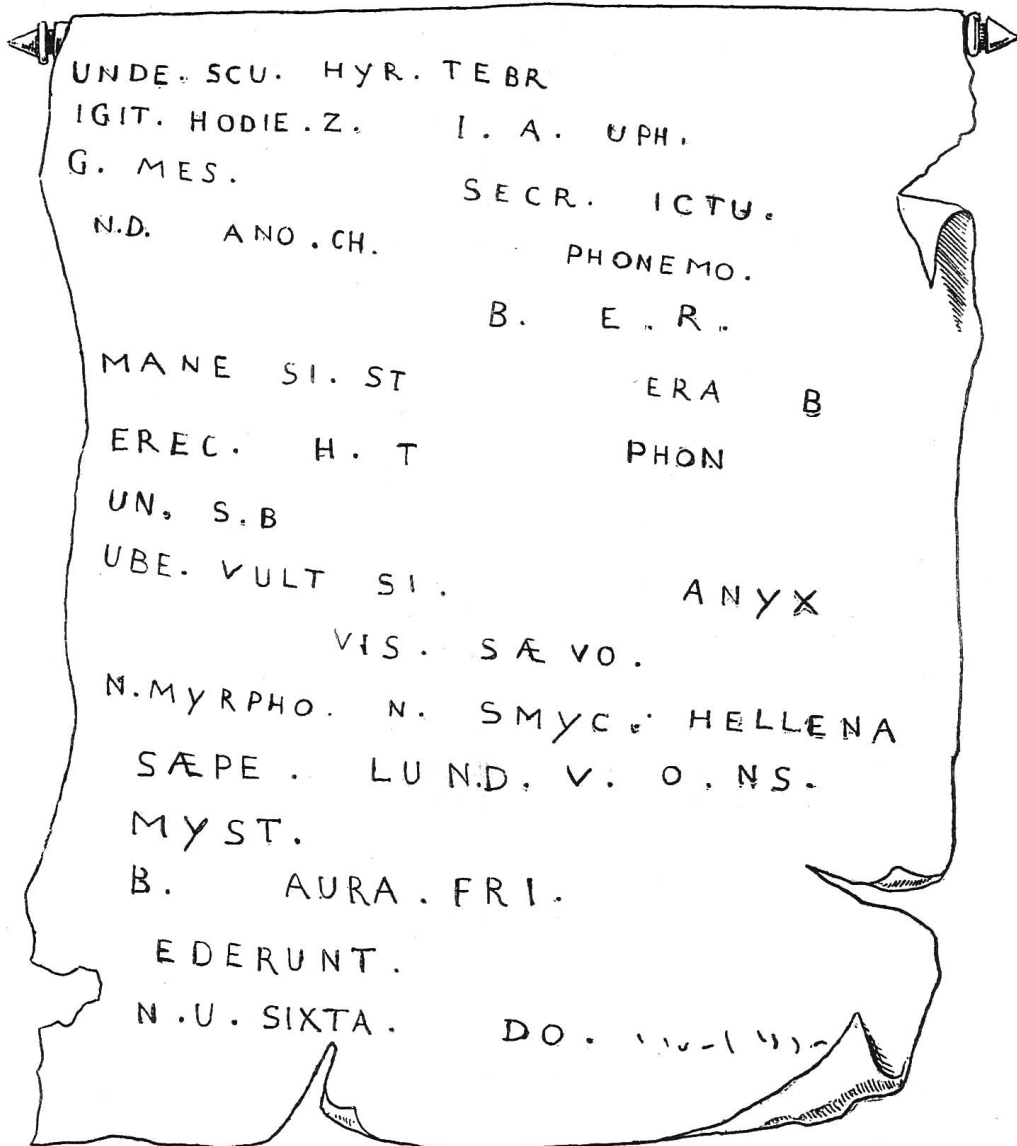 UNDE. SCU. HYR. TEBR
IGIT. HODIE. Z. I. A. UPH.
G. MES. SECR. ICTU.
N.D. ANO.CH. PHONEMO.
B. E. R.
MANE SI. ST ERA B
EREC. H. T PHON
UN. S.B
UBE. VULT SI. ANYX
VIS. SÆVO.
N.MYRPHO. N. SMYC. HELLENA
SÆPE. LUN.D. V. O. NS.
MYST.
B. AURA. FRI.
EDERUNT.
N.U. SIXTA. DO.